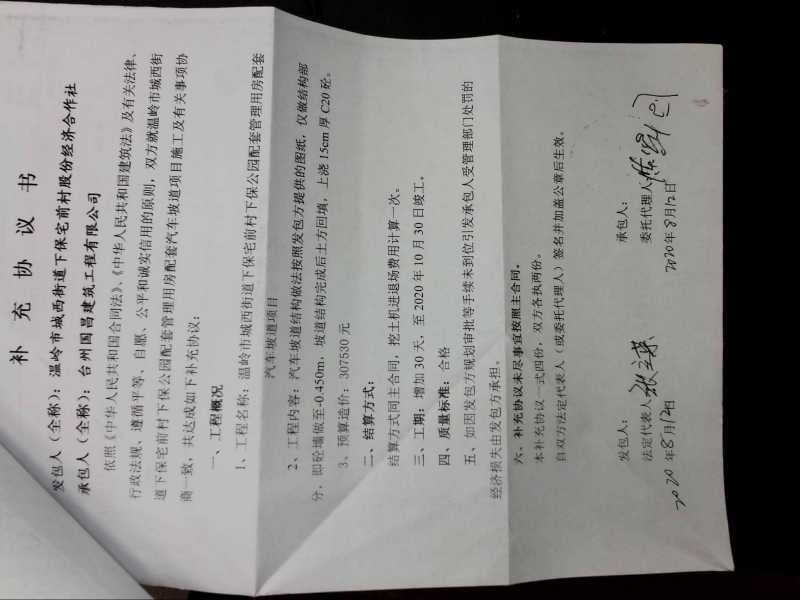 补 充 协 议 书
发包人（全称）：温岭市城西街道下保宅前村股份经济合作社
承包人（全称）：台州国昌建筑工程有限公司
依照《中华人民共和国合同法》、《中华人民共和国建筑法》及有关法律、
行政法规、遵循平等、自愿、公平和诚实信用的原则，双方就温岭市城西街
道下保宅前村下保公园配套管理用房配套汽车坡道项目施工及有关事项协
商一致，共达成如下补充协议：
一、工程概况
1、工程名称：温岭市城西街道下保宅前村下保公园配套管理用房配套
汽车坡道项目
2、工程内容：汽车坡道结构做法按照发包方提供的图纸，仅做结构部
分，即砼墙做至-0.450m，坡道结构完成后土方回填，上浇 15cm 厚 C20 砼。
3、预算造价：307530 元
二、结算方式：
结算方式同主合同，挖土机进退场费用计算一次。
三、工期：增加 30 天，至 2020 年 10 月 30 日竣工。
四、质量标准：合格
五、如因发包方规划审批等手续未到位引发承包人受管理部门处罚的
经济损失由发包方承担。
六、补充协议未尽事宜按照主合同。
本补充协议一式四份，双方各执两份。
自双方法定代表人（或委托代理人）签名并加盖公章后生效。
发包人： 承包人：
法定代表人 委托代理人
2020年8月12日 2020年8月12日